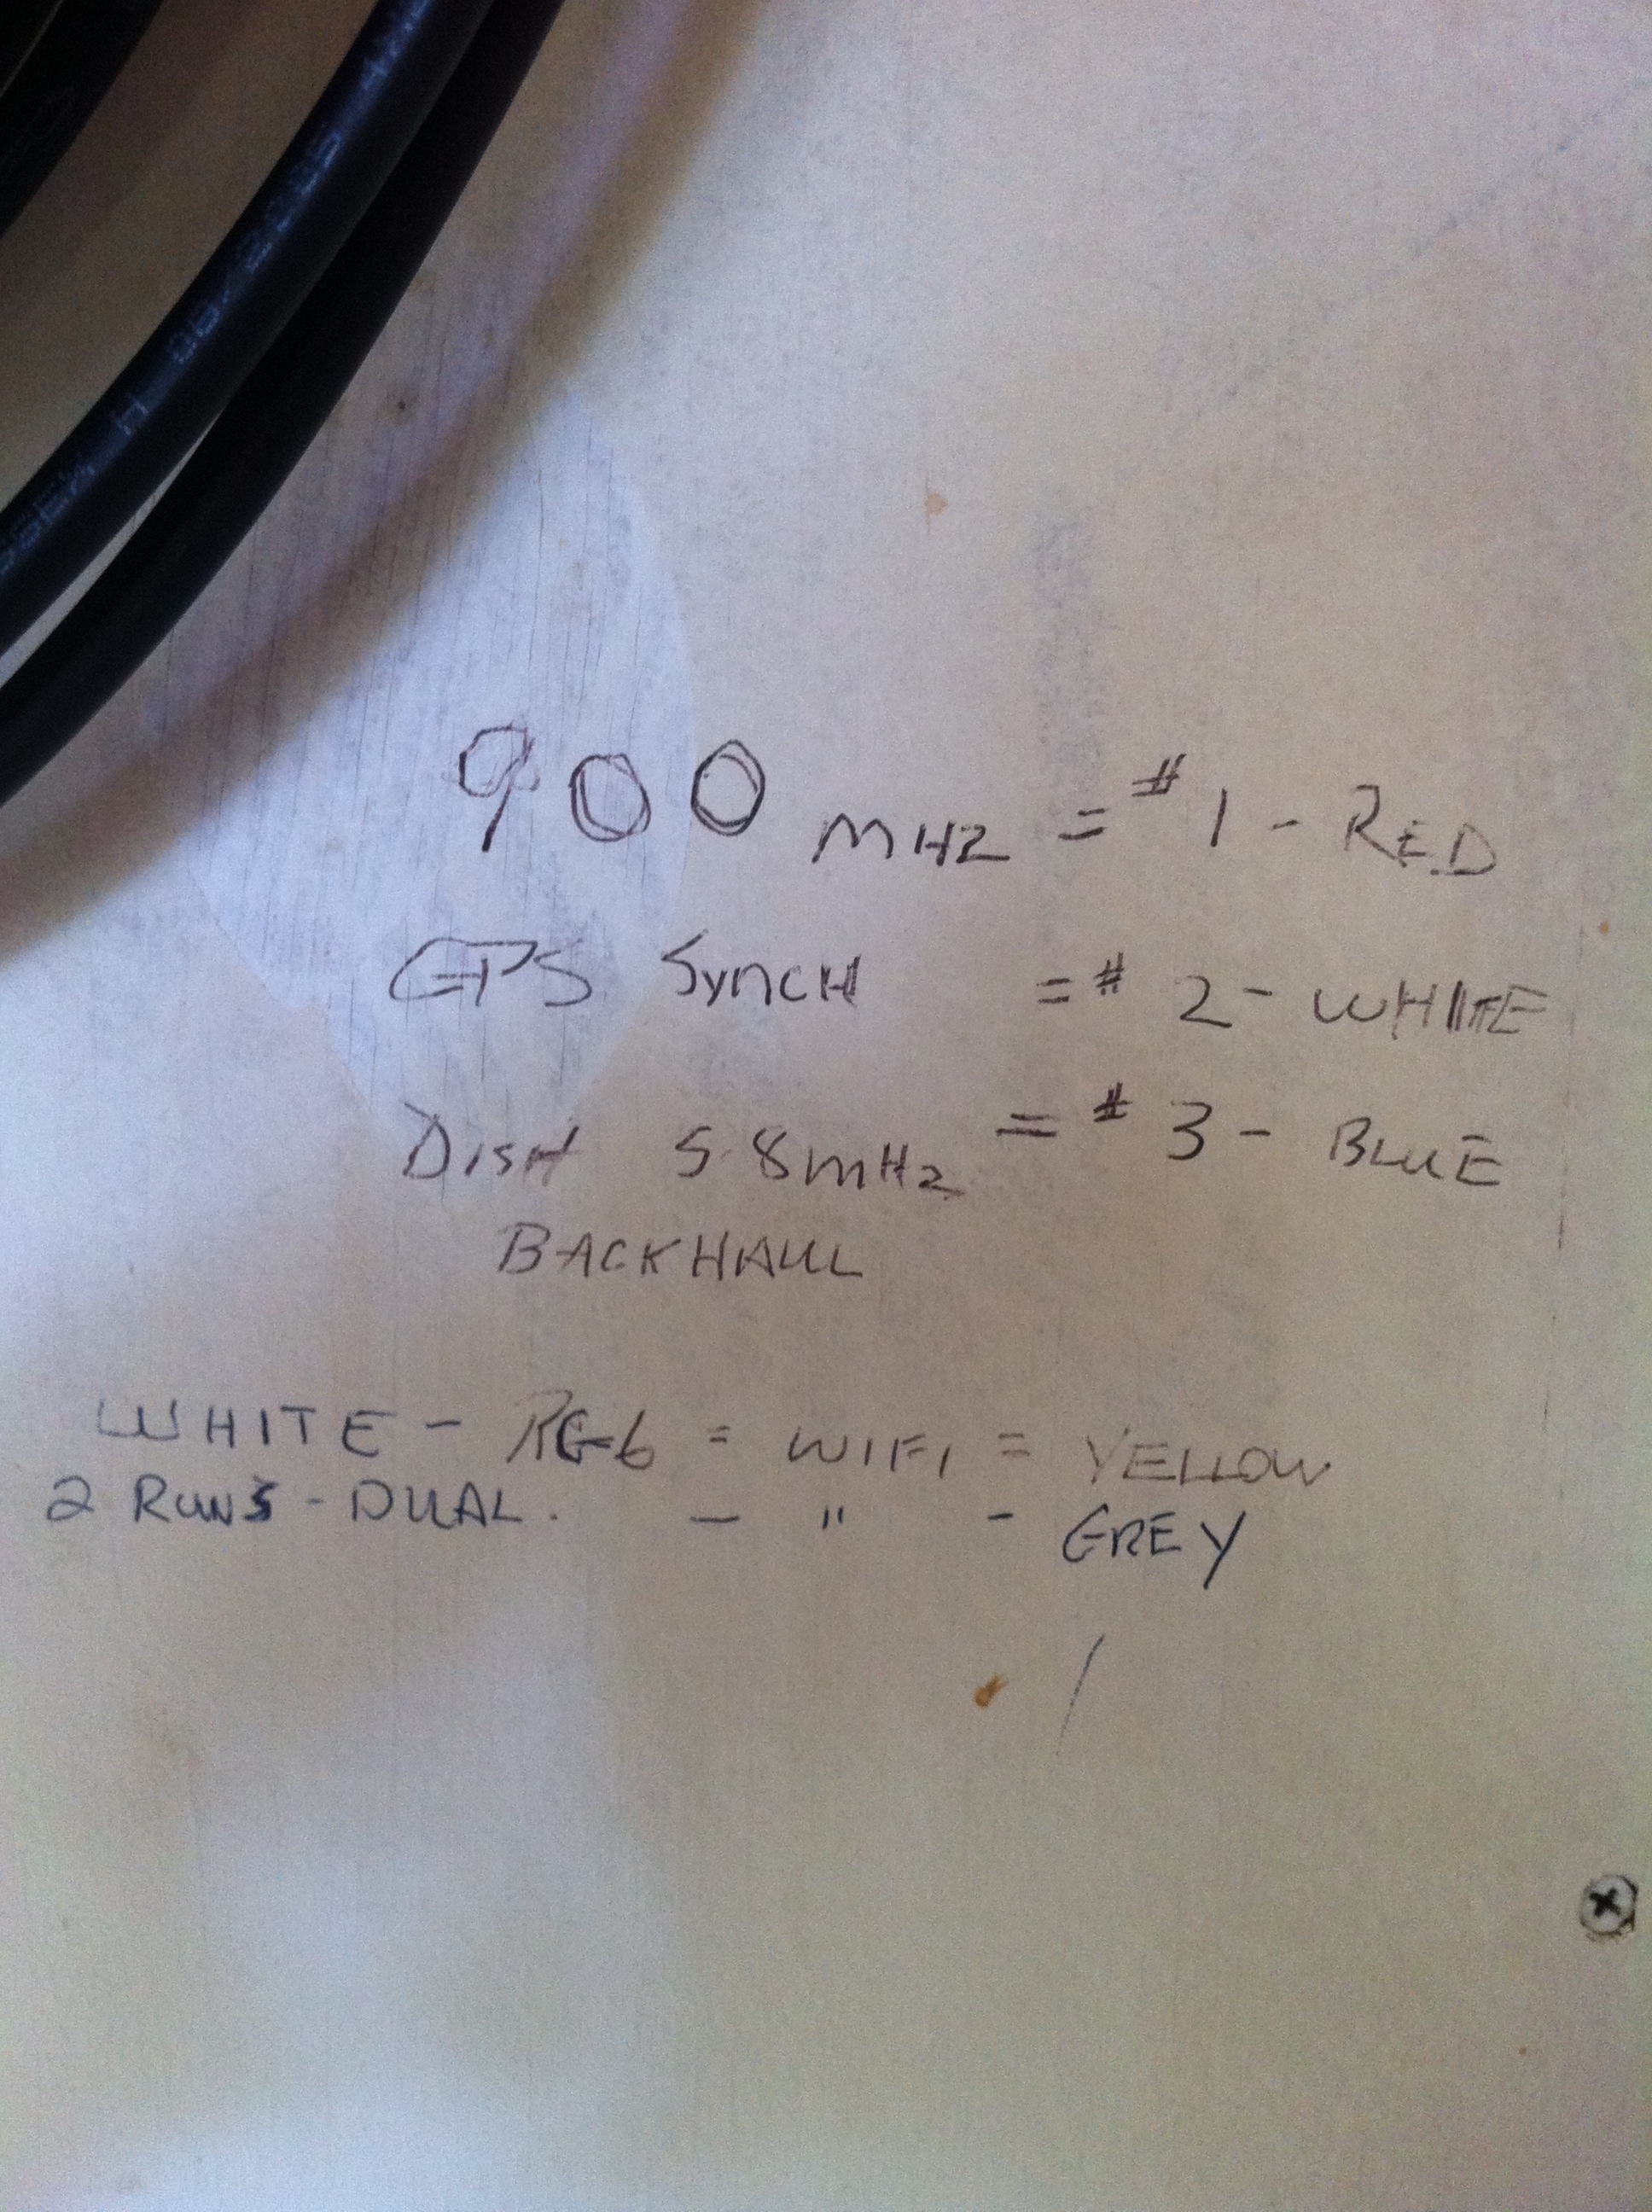 900 MHZ = # 1 - RED
GPS SYNCH = # 2 - WHITE
DISH 5.8 MHZ = # 3 - BLUE
BACKHAUL
WHITE - RG-6 = WIFI = YELLOW
2 RUNS - DUAL. - " - GREY